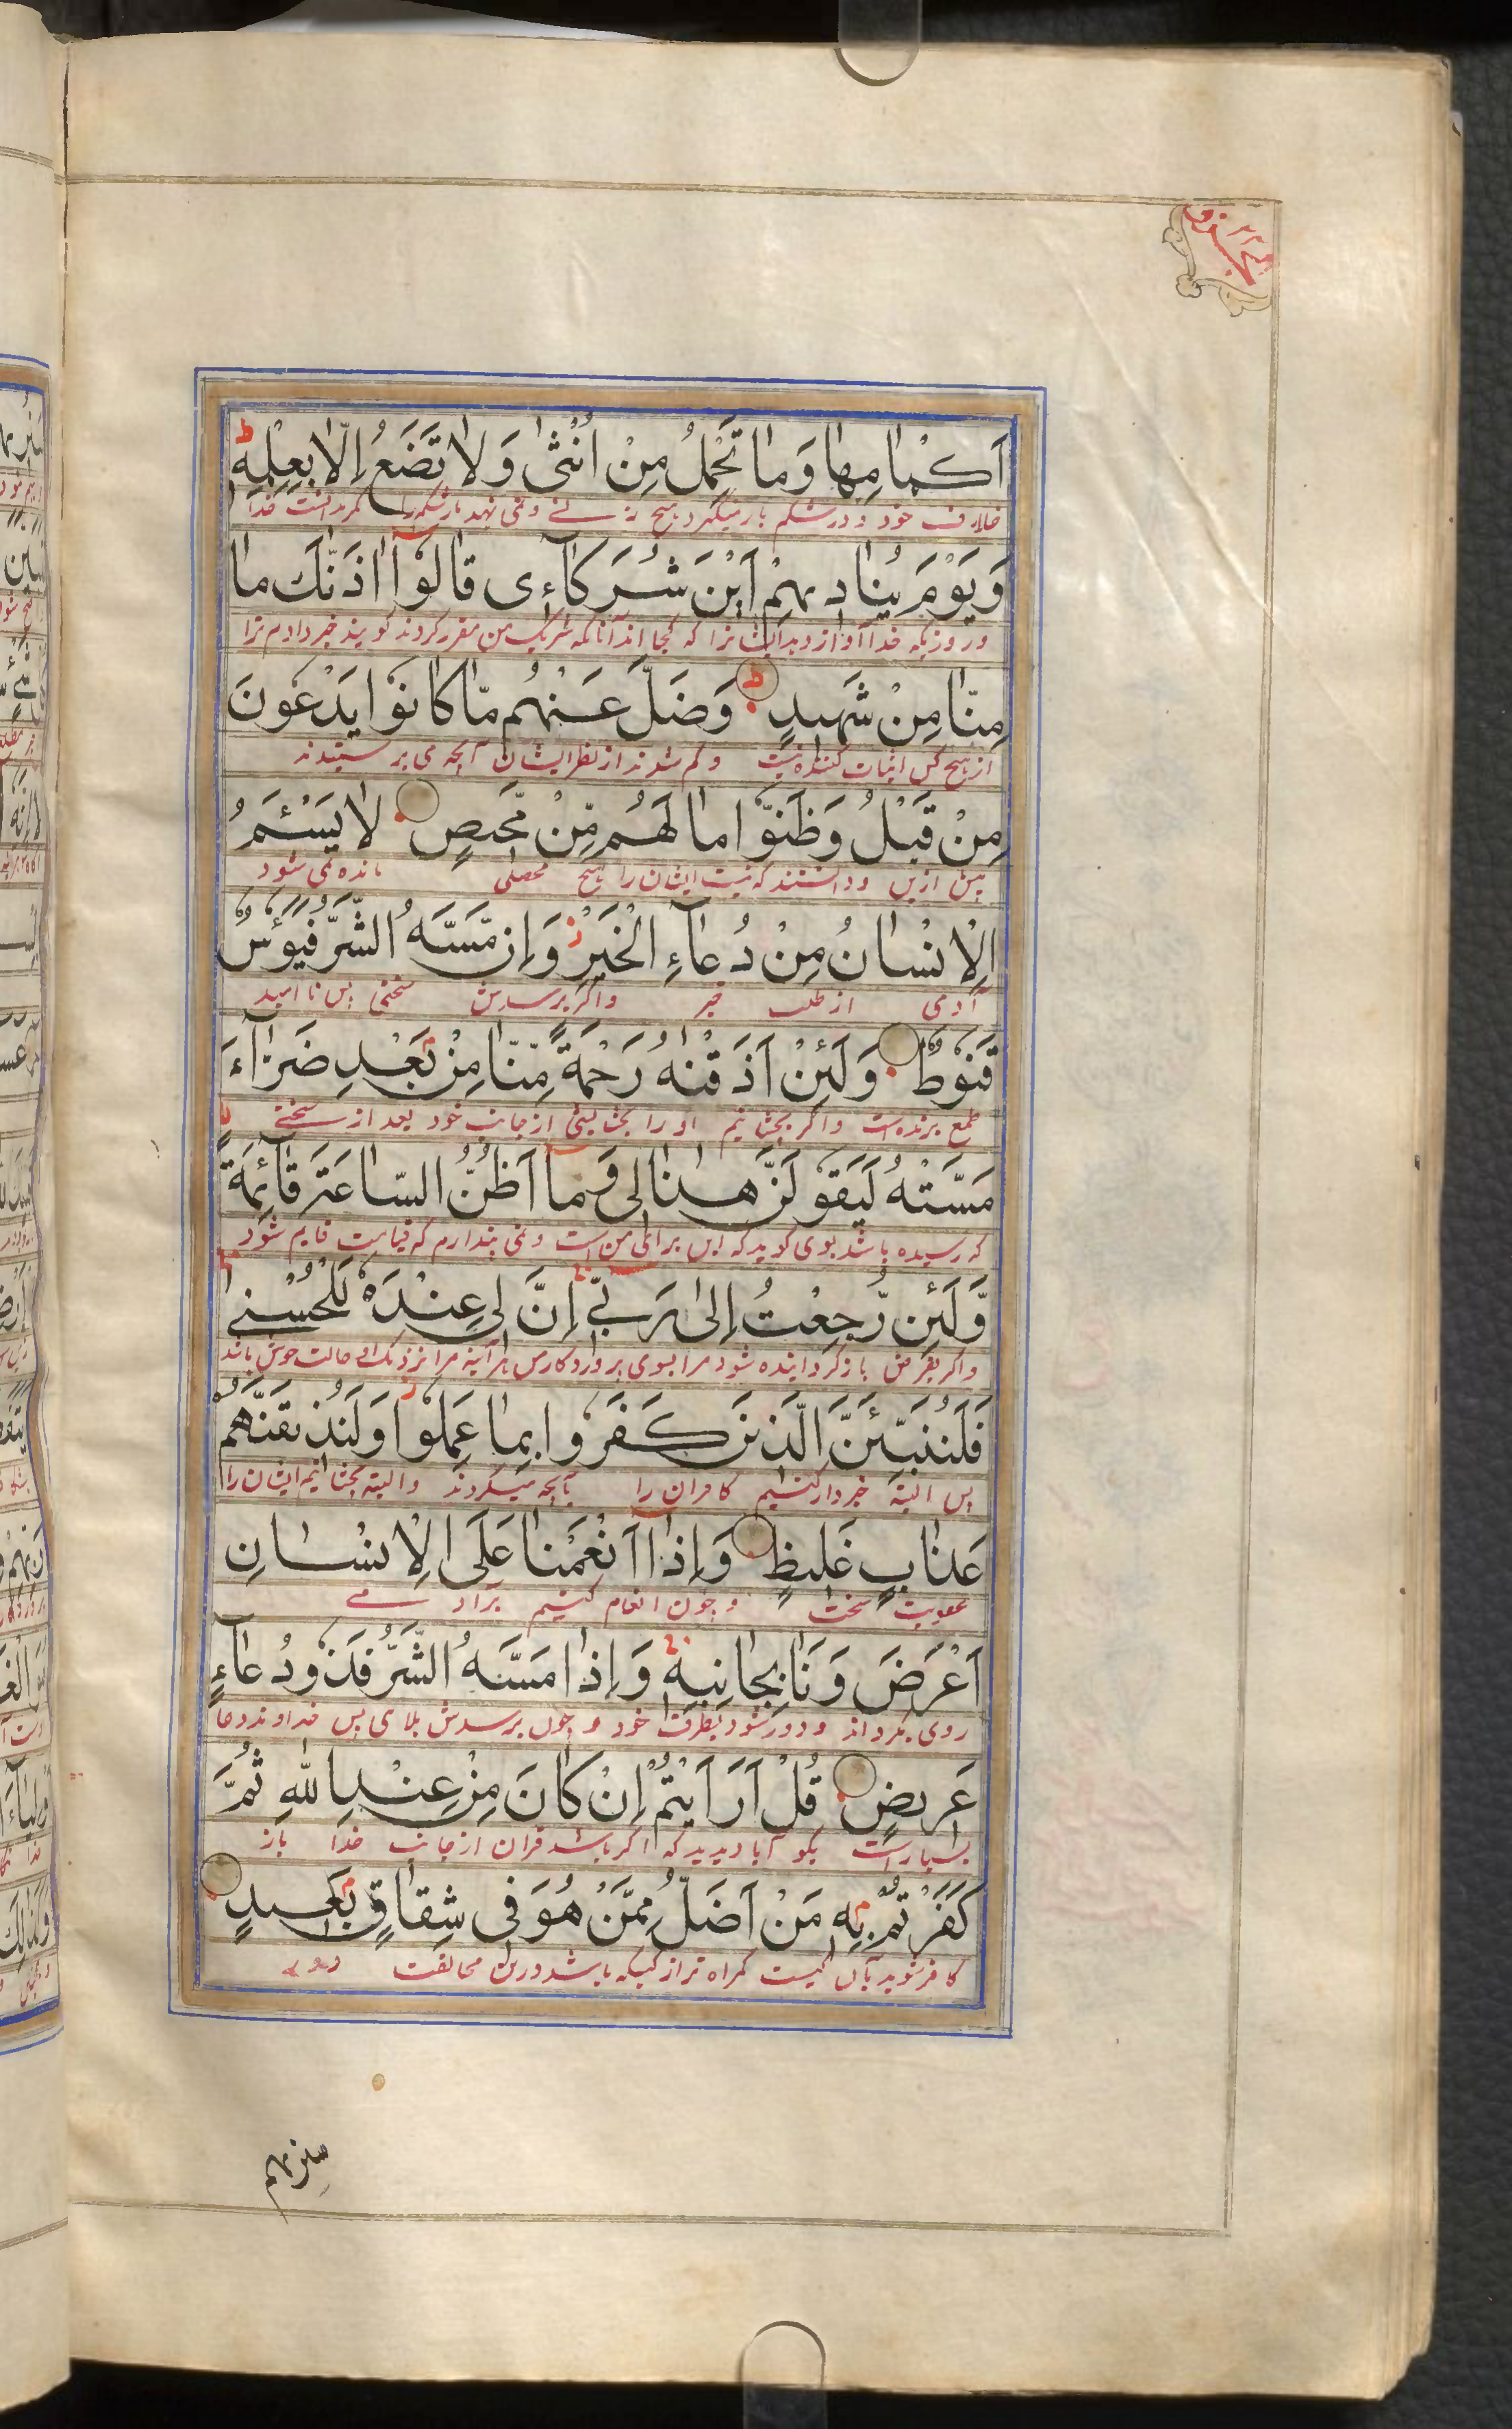 اَكْمَامِهَا وَمَا تَحْمِلُ مِنْ اُنْثٰى وَلَا تَضَعُ اِلَّا بِعِلْمِهٖ ط
غلاف خود و در شکم بار نمیگیرد هیچ و نمی نهد بار شکم را مگر بدانست خدا
وَيَوْمَ يُنَادِيهِمْ اَيْنَ شُرَكَآءِى قَالُوْٓا اٰذَنّٰكَ مَا
و روزیکه خدا آواز دهد ایشانرا که کجا اند آنانکه شریک من مقرر کردند گویند خبر دادیم ترا
مِنَّا مِنْ شَهِيدٍ ط وَضَلَّ عَنْهُم مَّا كَانُوْا يَدْعُونَ
از هیچ کس اثبات کننده نیست و گم شوند از نظر ایشان آنچه می پرستیدند
مِنْ قَبْلُ وَظَنُّوْا مَا لَهُم مِّنْ مَّحِيصٍ لَا يَسْئَمُ
پیش ازین و دانستند که نیست ایشان را هیچ مخلصی مانده نمی شود
الْاِنْسَانُ مِنْ دُعَآءِ الْخَيْرِ ز وَاِنْ مَّسَّهُ الشَّرُّ فَيَئُوْسٌ
آدمی از طلب خیر و اگر برسدش سختی پس نا امید
قَنُوْطٌ وَلَئِنْ اَذَقْنٰهُ رَحْمَةً مِّنَّا مِنْ بَعْدِ ضَرَّآءَ
طمع برنده است و اگر بچشانیم او را بخشایشی از جانب خود بعد از سختے
مَسَّتْهُ لَيَقُوْلَنَّ هٰذَا لِى وَمَآ اَظُنُّ السَّاعَةَ قَآئِمَةً
که رسیده باشد بوی گوید که این برای من است و نمی پندارم که قیامت قایم شود
وَّلَئِنْ رُّجِعْتُ اِلٰى رَبِّىٓ اِنَّ لِى عِنْدَهٗ لَلْحُسْنٰى
و اگر بفرض باز گردانیده شود مرا بسوی پروردگار من هر آینه مرا نزدیک او حالت خوش باشد
فَلَنُنَبِّئَنَّ الَّذِينَ كَفَرُوْا بِمَا عَمِلُوْا وَلَنُذِيقَنَّهُمْ
پس البته خبردار کنیم کافران را بآنچه میکردند و البته بچشانیم ایشان را
عَذَابٍ غَلِيظٍ وَاِذَآ اَنْعَمْنَا عَلَى الْاِنْسَانِ
عقوبت سخت و چون انعام کنیم بر آدمے
اَعْرَضَ وَنَاٰ بِجَانِبِهٖ وَاِذَا مَسَّهُ الشَّرُّ فَذُوْ دُعَآءٍ
روی بگرداند و دور شود بطرف خود و چون برسدش بلای پس خداوند دعا
عَرِيضٍ قُلْ اَرَاَيْتُمْ اِنْ كَانَ مِنْ عِنْدِ اللّٰهِ ثُمَّ
بسیار است بگو آیا دیدید که اگر باشد قران از جانب خدا باز
كَفَرْتُمْ بِهٖ مَنْ اَضَلُّ مِمَّنْ هُوَ فِى شِقَاقٍ بَعِيدٍ
کافر شوید بآن کیست گمراه تر از کسیکه باشد در مخالفت دور
سنریهم